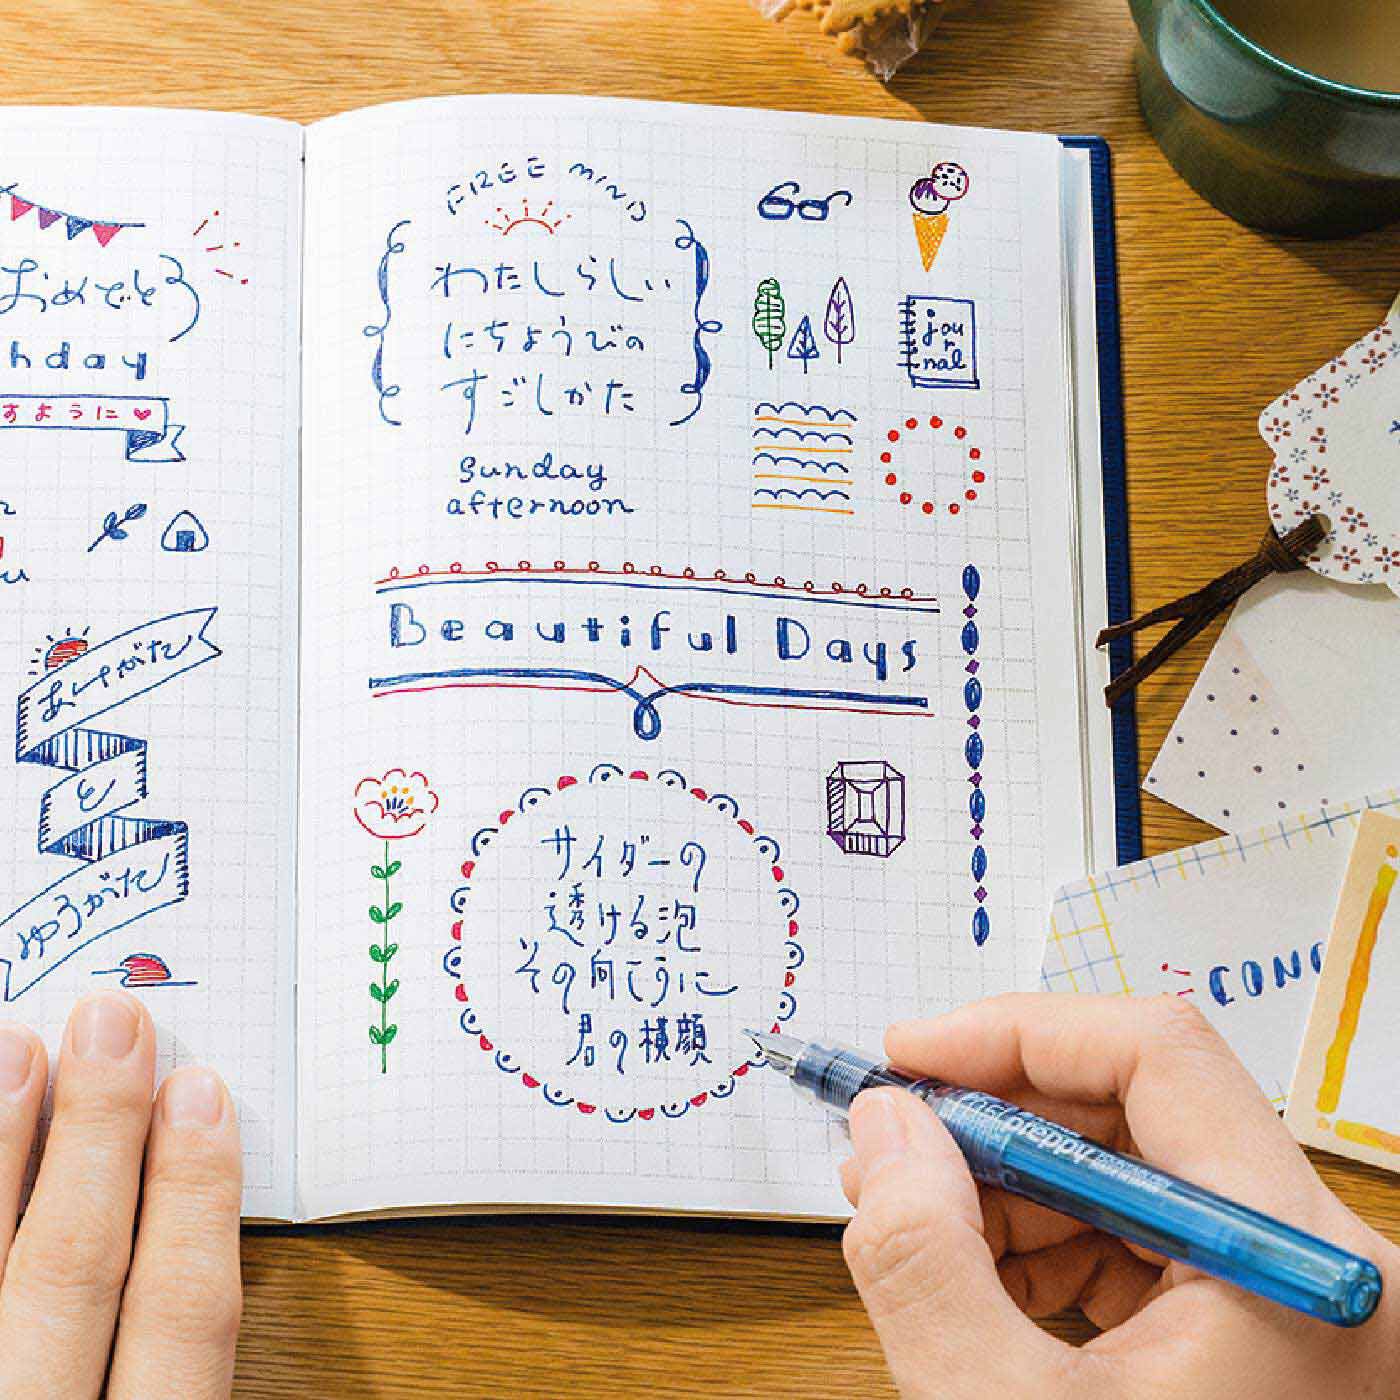 おめでと
hday
すように
あさがた
と
ゆうがた
FREE MIND
わたしらしい
にちようびの
すごしかた
sunday
afternoon
jou
r
nal
Beautiful Days
サイダーの
透ける泡
その向こうに
君の横顔
CONG
preppy